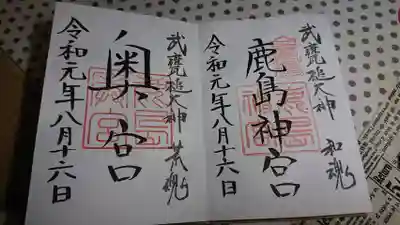 武甕槌大神 和魂
鹿島神宮
令和元年八月十六日
武甕槌大神 荒魂
奥宮
令和元年八月十六日